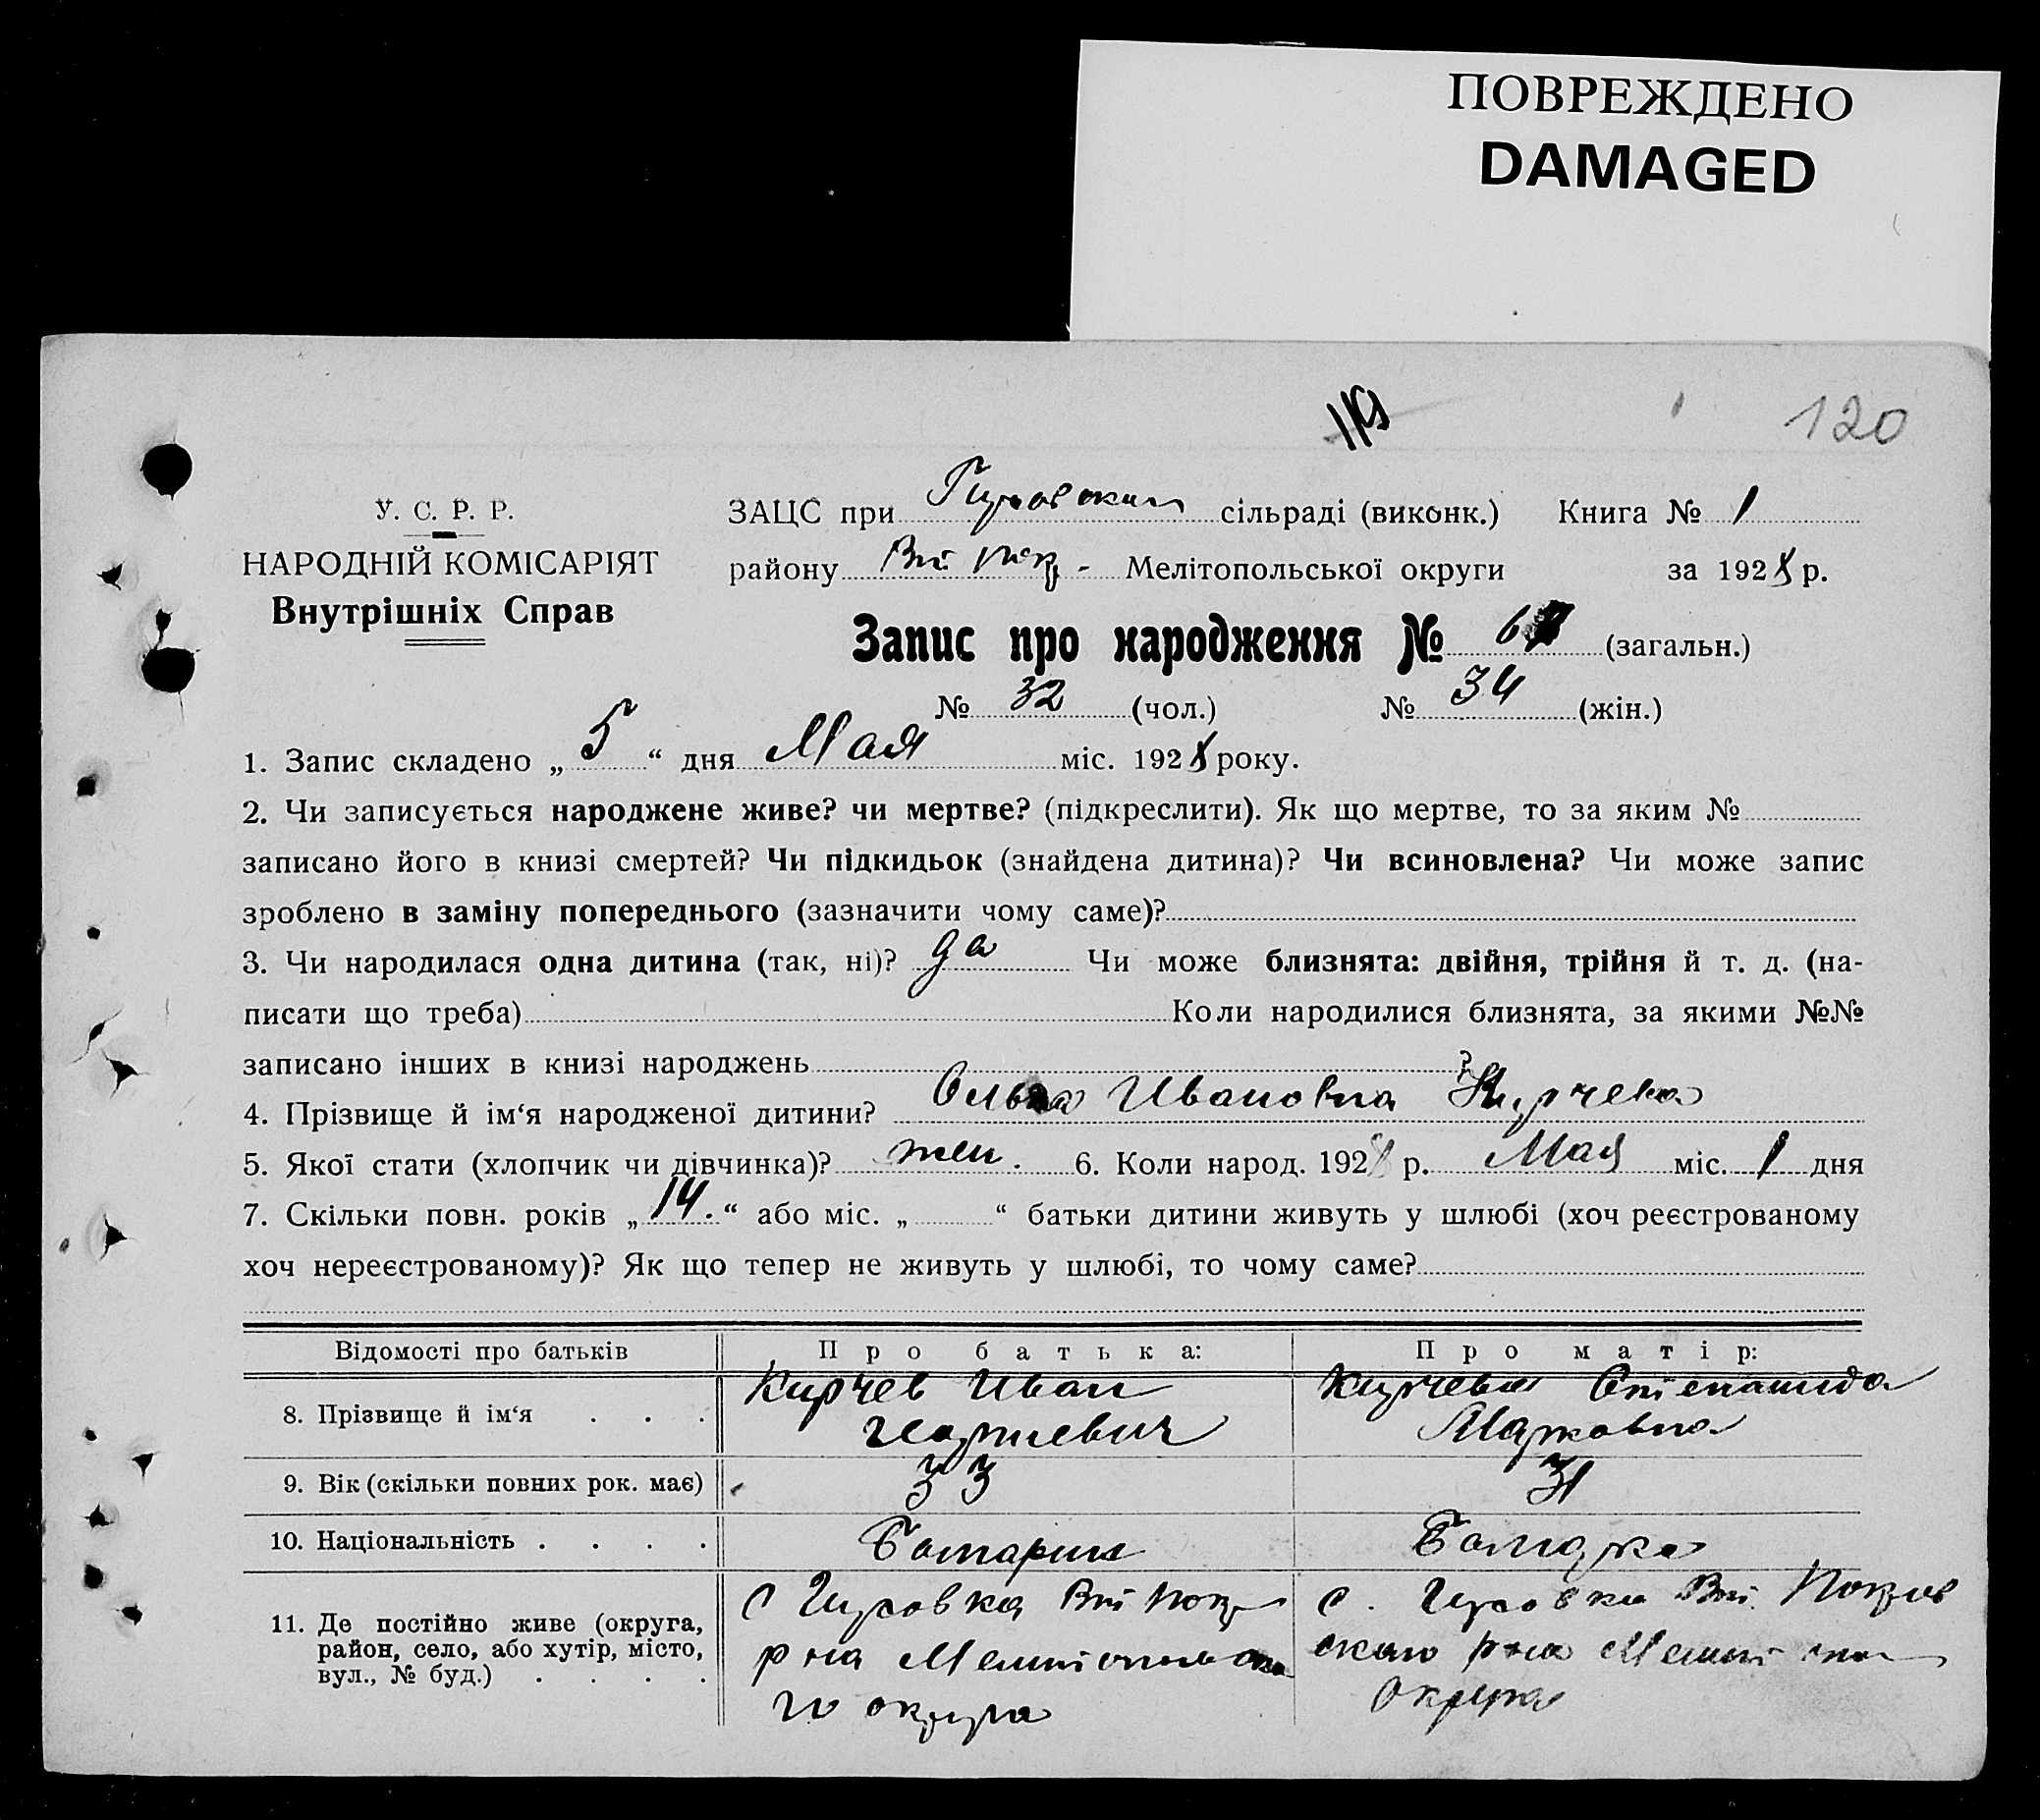 ПОВРЕЖДЕНО
DAMAGED
119
120
У. С. Р. Р.
НАРОДНІЙ КОМІСАРІЯТ
Внутрішніх Справ
ЗАЦС при Гировском сільраді (виконк.) Книга № 1
району Вт Покр - Мелітопольської округи за 1928 р.
Запис про народження № 6 (загальн.)
№ 32 (чол.) № 34 (жін.)
1. Запис складено „ 5 “ дня Мая міс. 1928 року.
2. Чи записується народжене живе? чи мертве? (підкреслити). Як що мертве, то за яким №
записано його в книзі смертей? Чи підкидьок (знайдена дитина)? Чи всиновлена? Чи може запис
зроблено в заміну попереднього (зазначити чому саме)?
3. Чи народилася одна дитина (так, ні)? да Чи може близнята: двійня, трійня й т. д. (на-
писати що треба) Коли народилися близнята, за якими №№
записано інших в книзі народжень ?
4. Прізвище й ім‘я народженої дитини? Ольга Ивановна Кирчева
5. Якої стати (хлопчик чи дівчинка)? жен. 6. Коли народ. 1928 р. Мая міс. 1 дня
7. Скільки повн. років „ 14. “ або міс. „ “ батьки дитини живуть у шлюбі (хоч реєстрованому
хоч нереєстрованому)? Як що тепер не живуть у шлюбі, то чому саме?
Відомості про батьків Про батька: Про матір:
8. Прізвище й ім‘я . . . Кирчев Иван Кирчева Степанида
Георгиевич Марковна
9. Вік (скільки повних рок. має) 33 31
10. Національність . . . . Болгарин Болгарка
11. Де постійно живе (округа, район, село, або хутір, місто, вул., № буд.) . . . .
с Гировка Вт Покр
р на Мелитопольско
го округа
с. Гировка Вт. Покров
ского р на Мелит
Округа